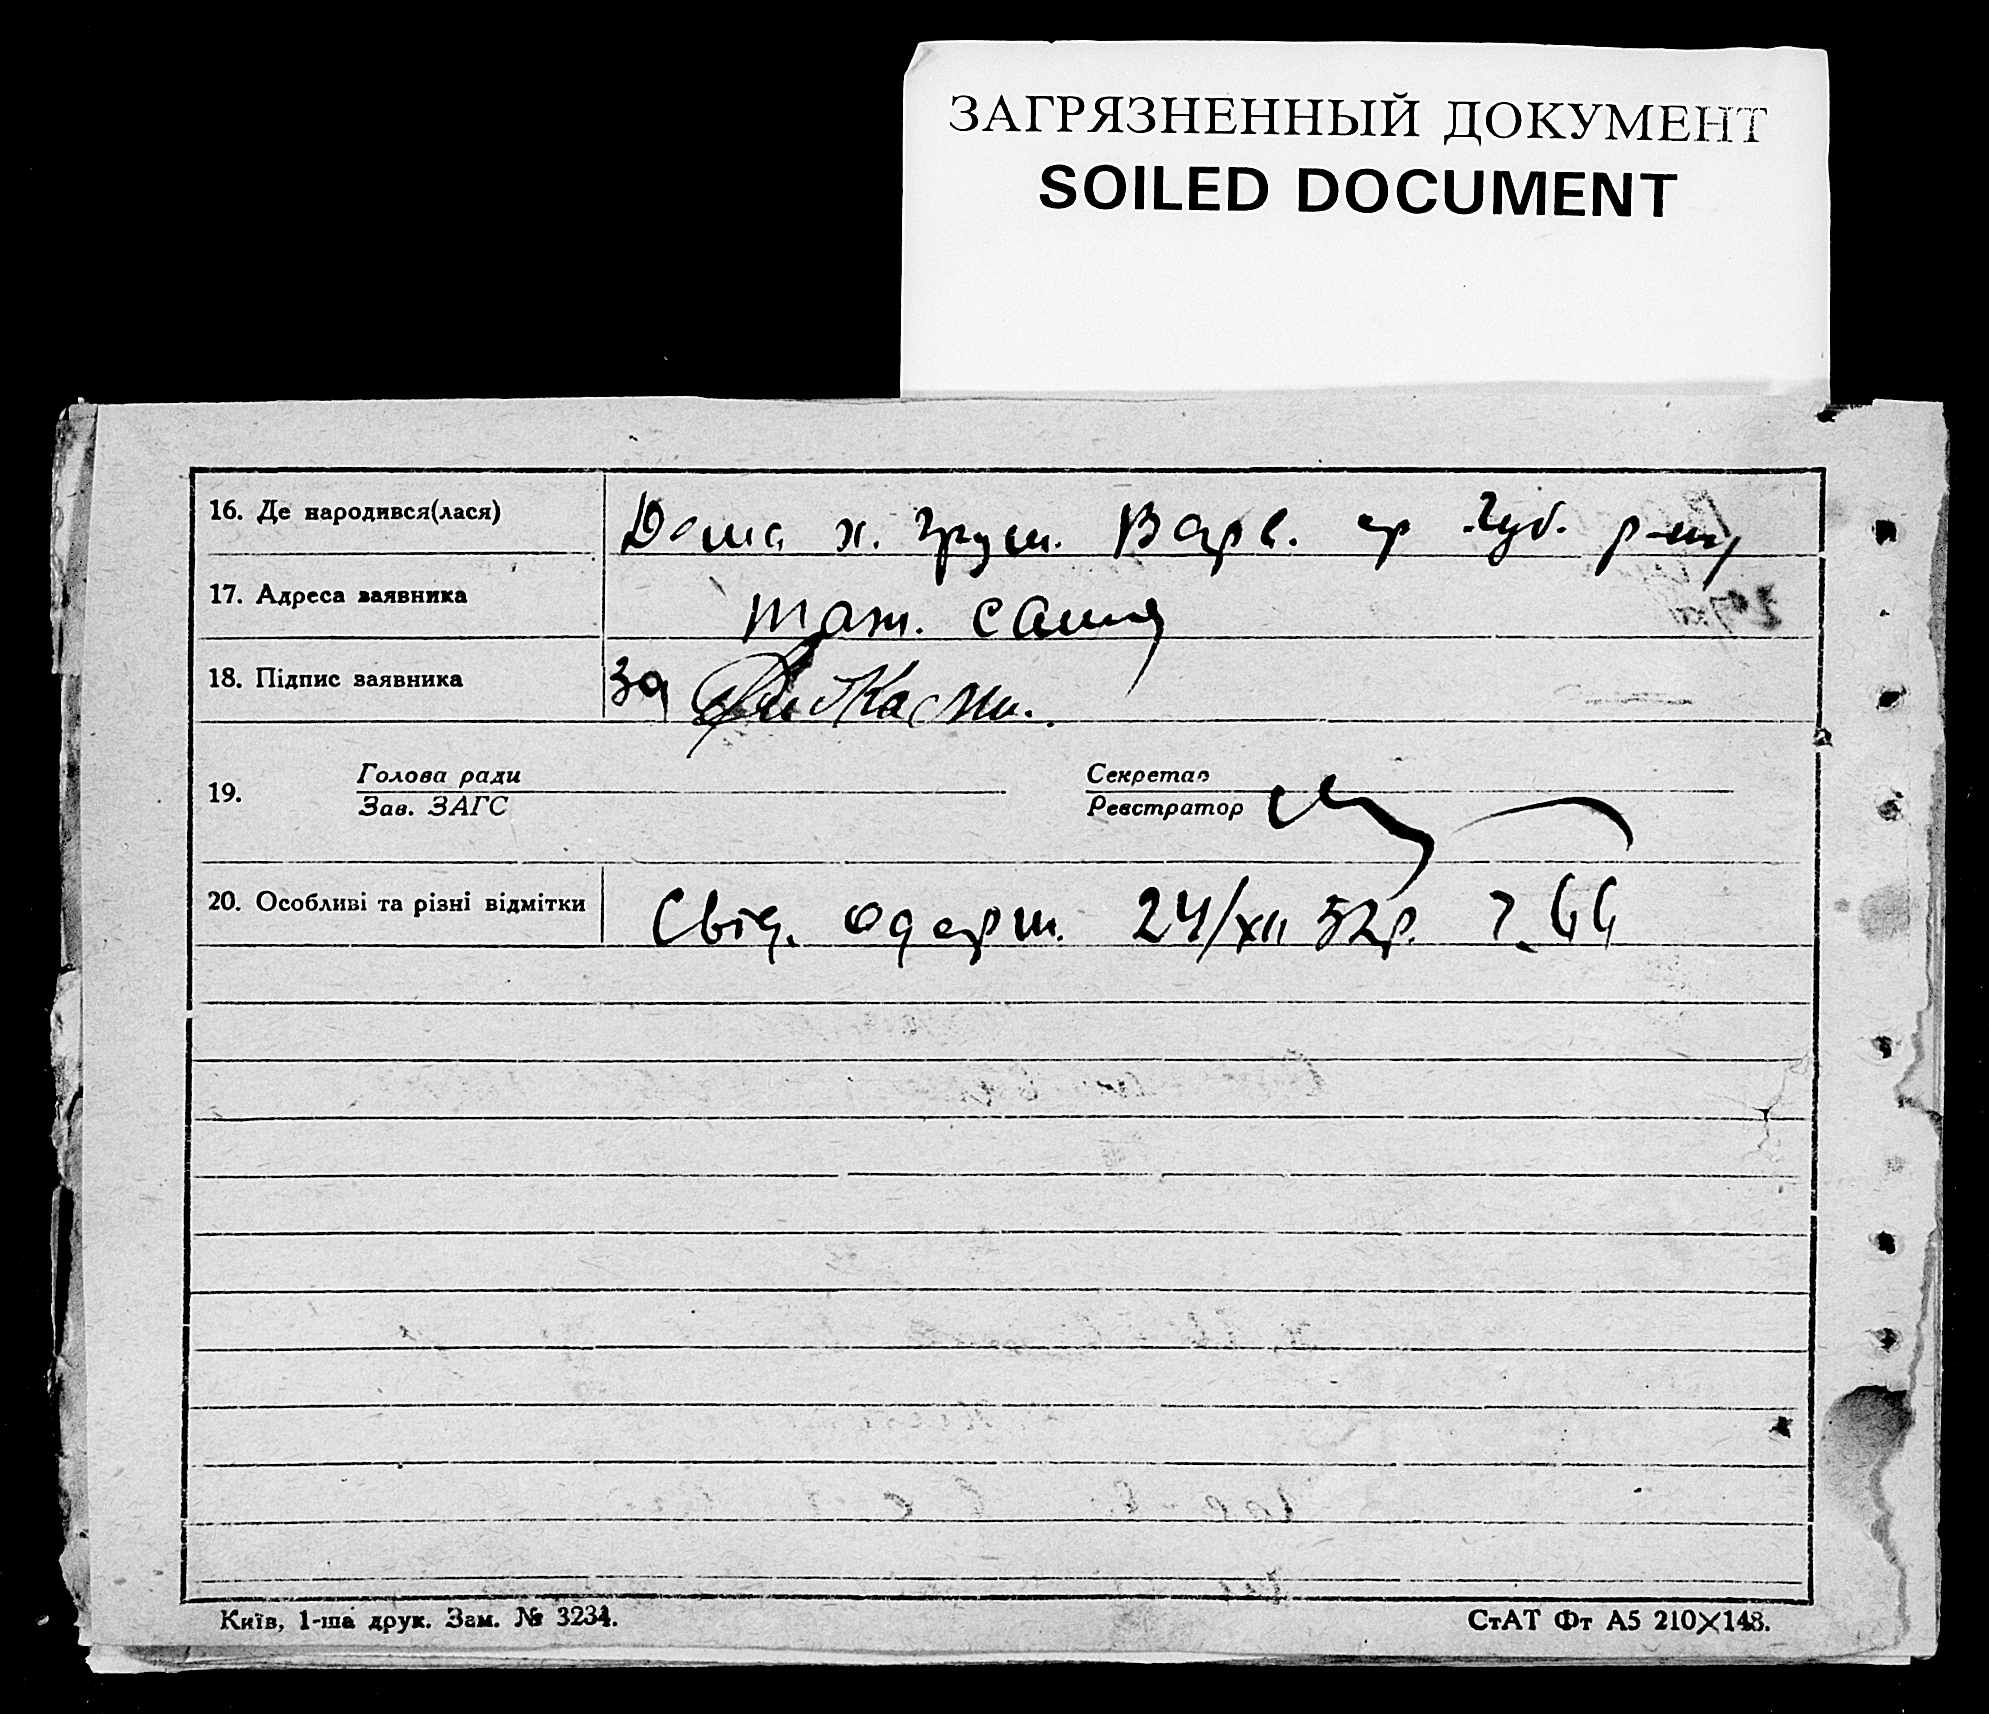 ЗАГРЯЗНЕННЫЙ ДОКУМЕНТ
SOILED DOCUMENT
16. Де народився(лася) Дома х. Груш. Варв. ср Чуб. р-ну
17. Адреса заявника там. сами
18. Підпис заявника За
19. Голова ради Секретар
Зав. ЗАГС Реєстратор
20. Особливі та різні відмітки Свід. одерж. 24/XII 32р.
Київ, 1-ша друк. Зам. № 3234. СтАТ Фт А5 210×148.